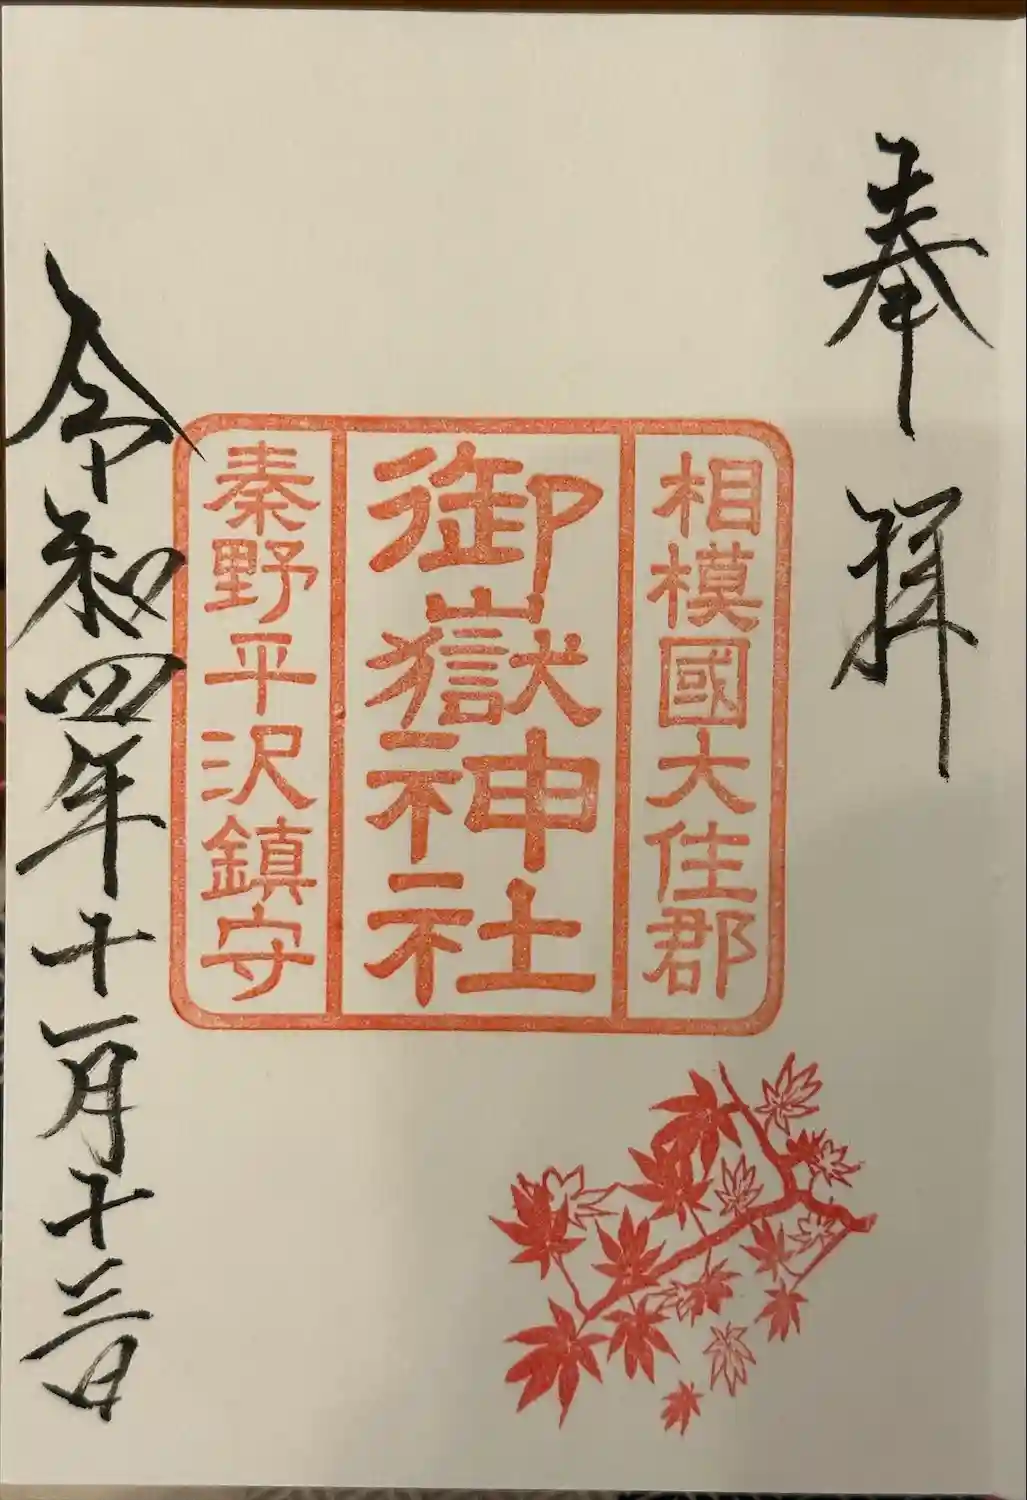 奉拝
相模國大住郡
御嶽神社
秦野平沢鎮守
令和四年十一月十三日